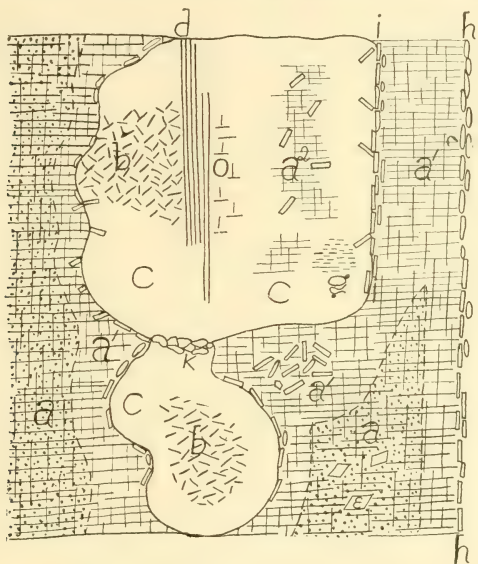 d i h
b o a² a'
c c g
a' K a'
a c b a
ε
h